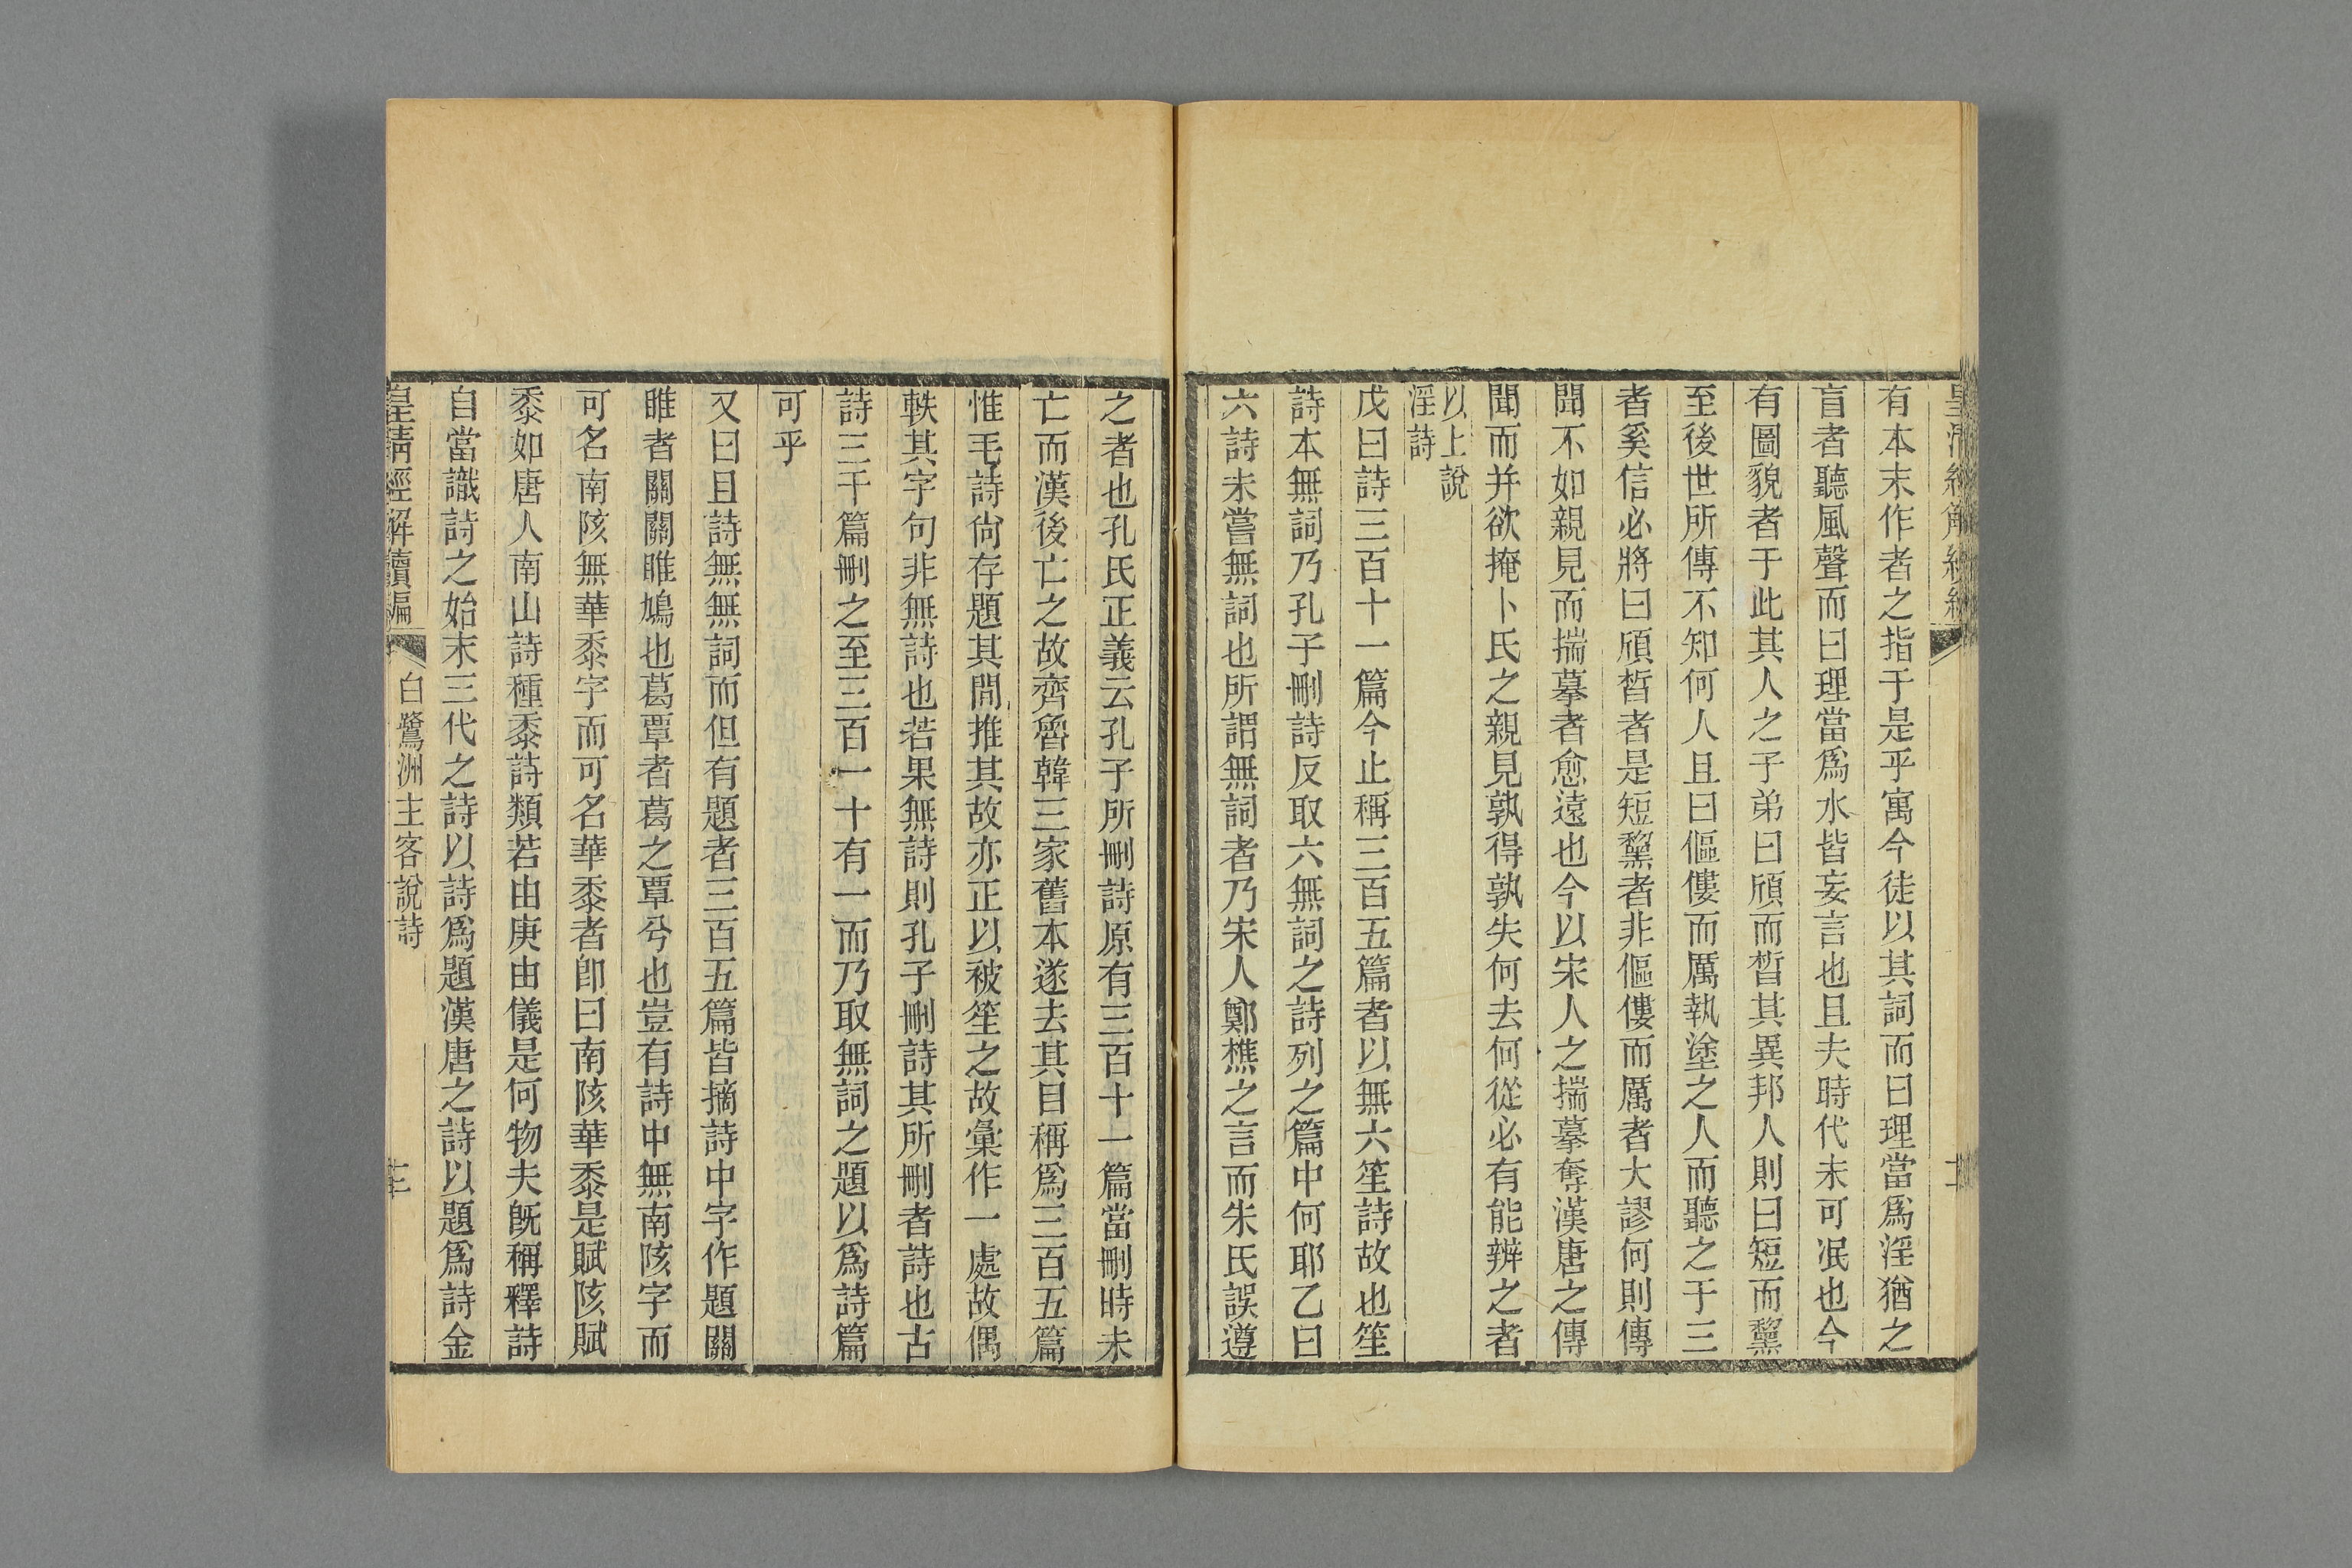 皇清經解續編
有本末作者之指于是乎寓今徒以其詞而曰理當爲淫猶之
盲者聽風聲而曰理當爲水皆妄言也且夫時代未可泯也今
有圖貌者于此其人之子弟曰頎而晳其異邦人則曰短而黧
至後世所傳不知何人且曰傴僂而厲執塗之人而聽之于三
者奚信必將曰頎晳者是短黧者非傴僂而厲者大謬何則傳
聞不如親見而揣摹者愈遠也今以宋人之揣摹奪漢唐之傳
聞而并欲掩卜氏之親見孰得孰失何去何從必有能辨之者
以上說
淫詩
戊曰詩三百十一篇今止稱三百五篇者以無六笙詩故也笙
詩本無詞乃孔子刪詩反取六無詞之詩列之篇中何耶乙曰
六詩未嘗無詞也所謂無詞者乃宋人鄭樵之言而朱氏誤遵
之者也孔氏正義云孔子所刪詩原有三百十一篇當刪時未
亡而漢後亡之故齊魯韓三家舊本遂去其目稱爲三百五篇
惟毛詩尙存題其間推其故亦正以被笙之故彙作一處故偶
軼其字句非無詩也若果無詩則孔子刪詩其所刪者詩也古
詩三千篇刪之至三百一十有一而乃取無詞之題以爲詩篇
可乎
又曰且詩無無詞而但有題者三百五篇皆摘詩中字作題關
睢者關關睢鳩也葛覃者葛之覃兮也豈有詩中無南陔字而
可名南陔無華黍字而可名華黍者卽曰南陔華黍是賦陔賦
黍如唐人南山詩種黍詩類若由庚由儀是何物夫旣稱釋詩
自當識詩之始末三代之詩以詩爲題漢唐之詩以題爲詩金
皇清經解續編
白鷺洲主客說詩